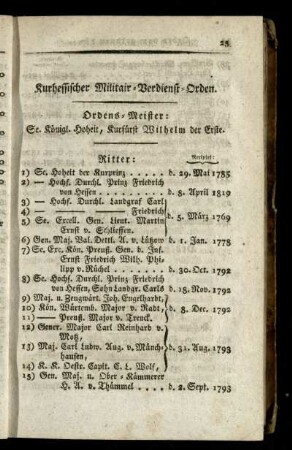 25
Kurhessischer Militair-Verdienst-Orden.
Ordens-Meister:
Se. Königl. Hoheit, Kurfürst Wilhelm der Erste.
Ritter:
Receptet:
1) Se. Hoheit der Kurprinz d. 29. Mai 1785
2) — Hochf. Durchl. Prinz Friedrich
von Hessen d. 8. April 1819
3) — Hochf. Durchl. Landgraf Carl
4) — Friedrich
5) Se. Excell. Gen. Lieut. Martin
Ernst v. Schlieffen. d. 5. März 1769
6) Gen. Maj. Val. Dettl. A. v. Lützow d. 1. Jan. 1778
7) Se. Exc. Kön. Preuß. Gen. d. Inf.
Ernst Friedrich Wilh. Phi-
lipp v. Rüchel d. 30. Oct. 1792
8) Se. Hochf. Durchl. Prinz Friedrich
von Hessen, Sohn Landgr. Carls d. 18. Nov. 1792
9) Maj. u. Zeugwärt. Joh. Engelhardt,
10) Kön. Würtemb. Major v. Radt, d. 8. Dec. 1792
11) — Preuß. Major v. Trenck.
12) Gener. Major Carl Reinhard v.
Motz,
13) Maj. Carl Ludw. Aug. v. Münch-
hausen, d. 31. Aug. 1793
14) K. K. Oestr. Capit. C. L. Wolf,
15) Gen. Maj. u. Ober-Kämmerer
H. A. v. Thümmel d. 2. Sept. 1793